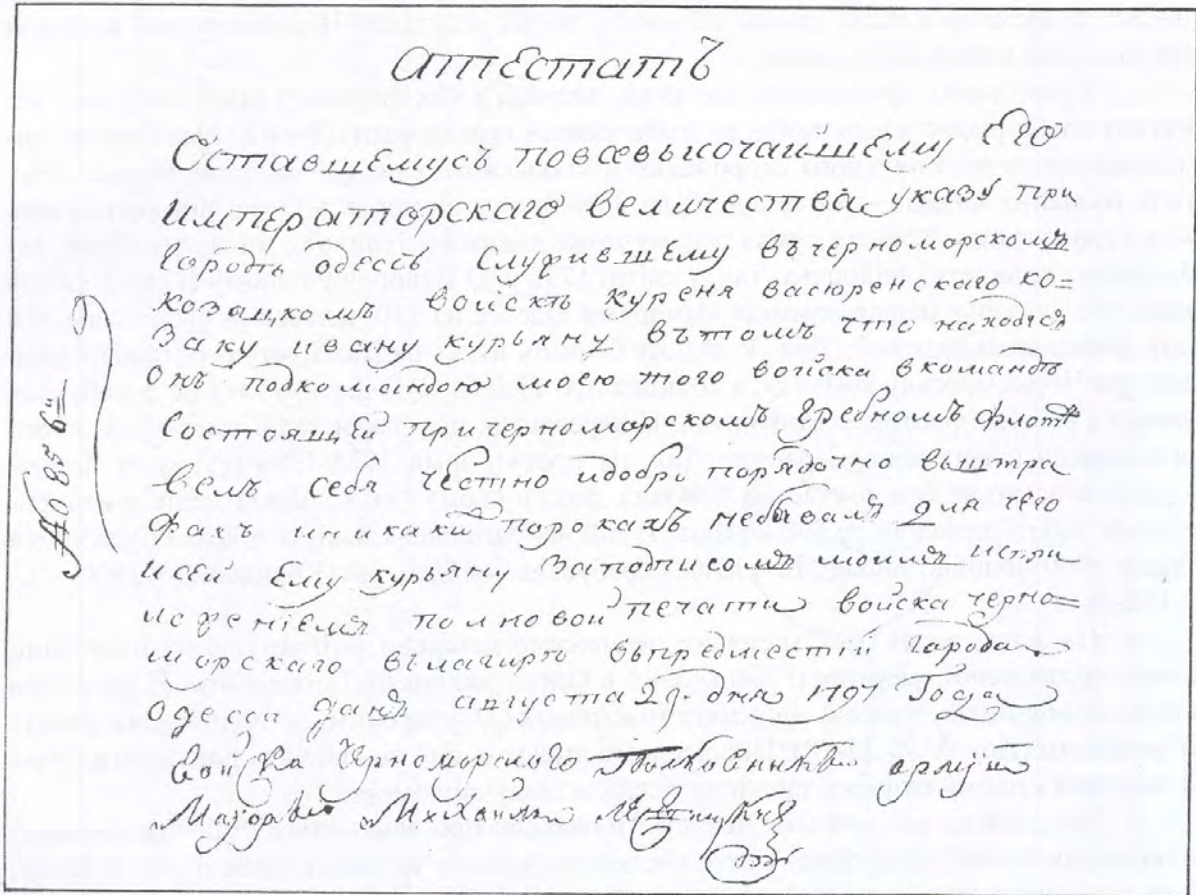 аттестатъ
Оставшемусъ повсевысочаишему Его
Императорскаго величества указу при
городѣ одесѣ служившему въчерноморскомъ
козацкомъ воискѣ куреня васюренского ко=
заку ивану курьяну вътомъ что находясь
онъ подкомендою моею того войска вкомандѣ
состоящей причерноморскомъ гребномъ флотѣ
велъ себя честно идобро порядочно вштра
фахъ иникаки порокахъ небылъ для чего
исей ему курьяну заподписомъ моимъ испри
ложеніемъ полковои печати войска черно=
морскаго въ лагирѣ въпредместіи города
одесы данъ августа дня 1797 года
Воиска Черноморского Полковникъ арміи
Маіоръ Михаилъ